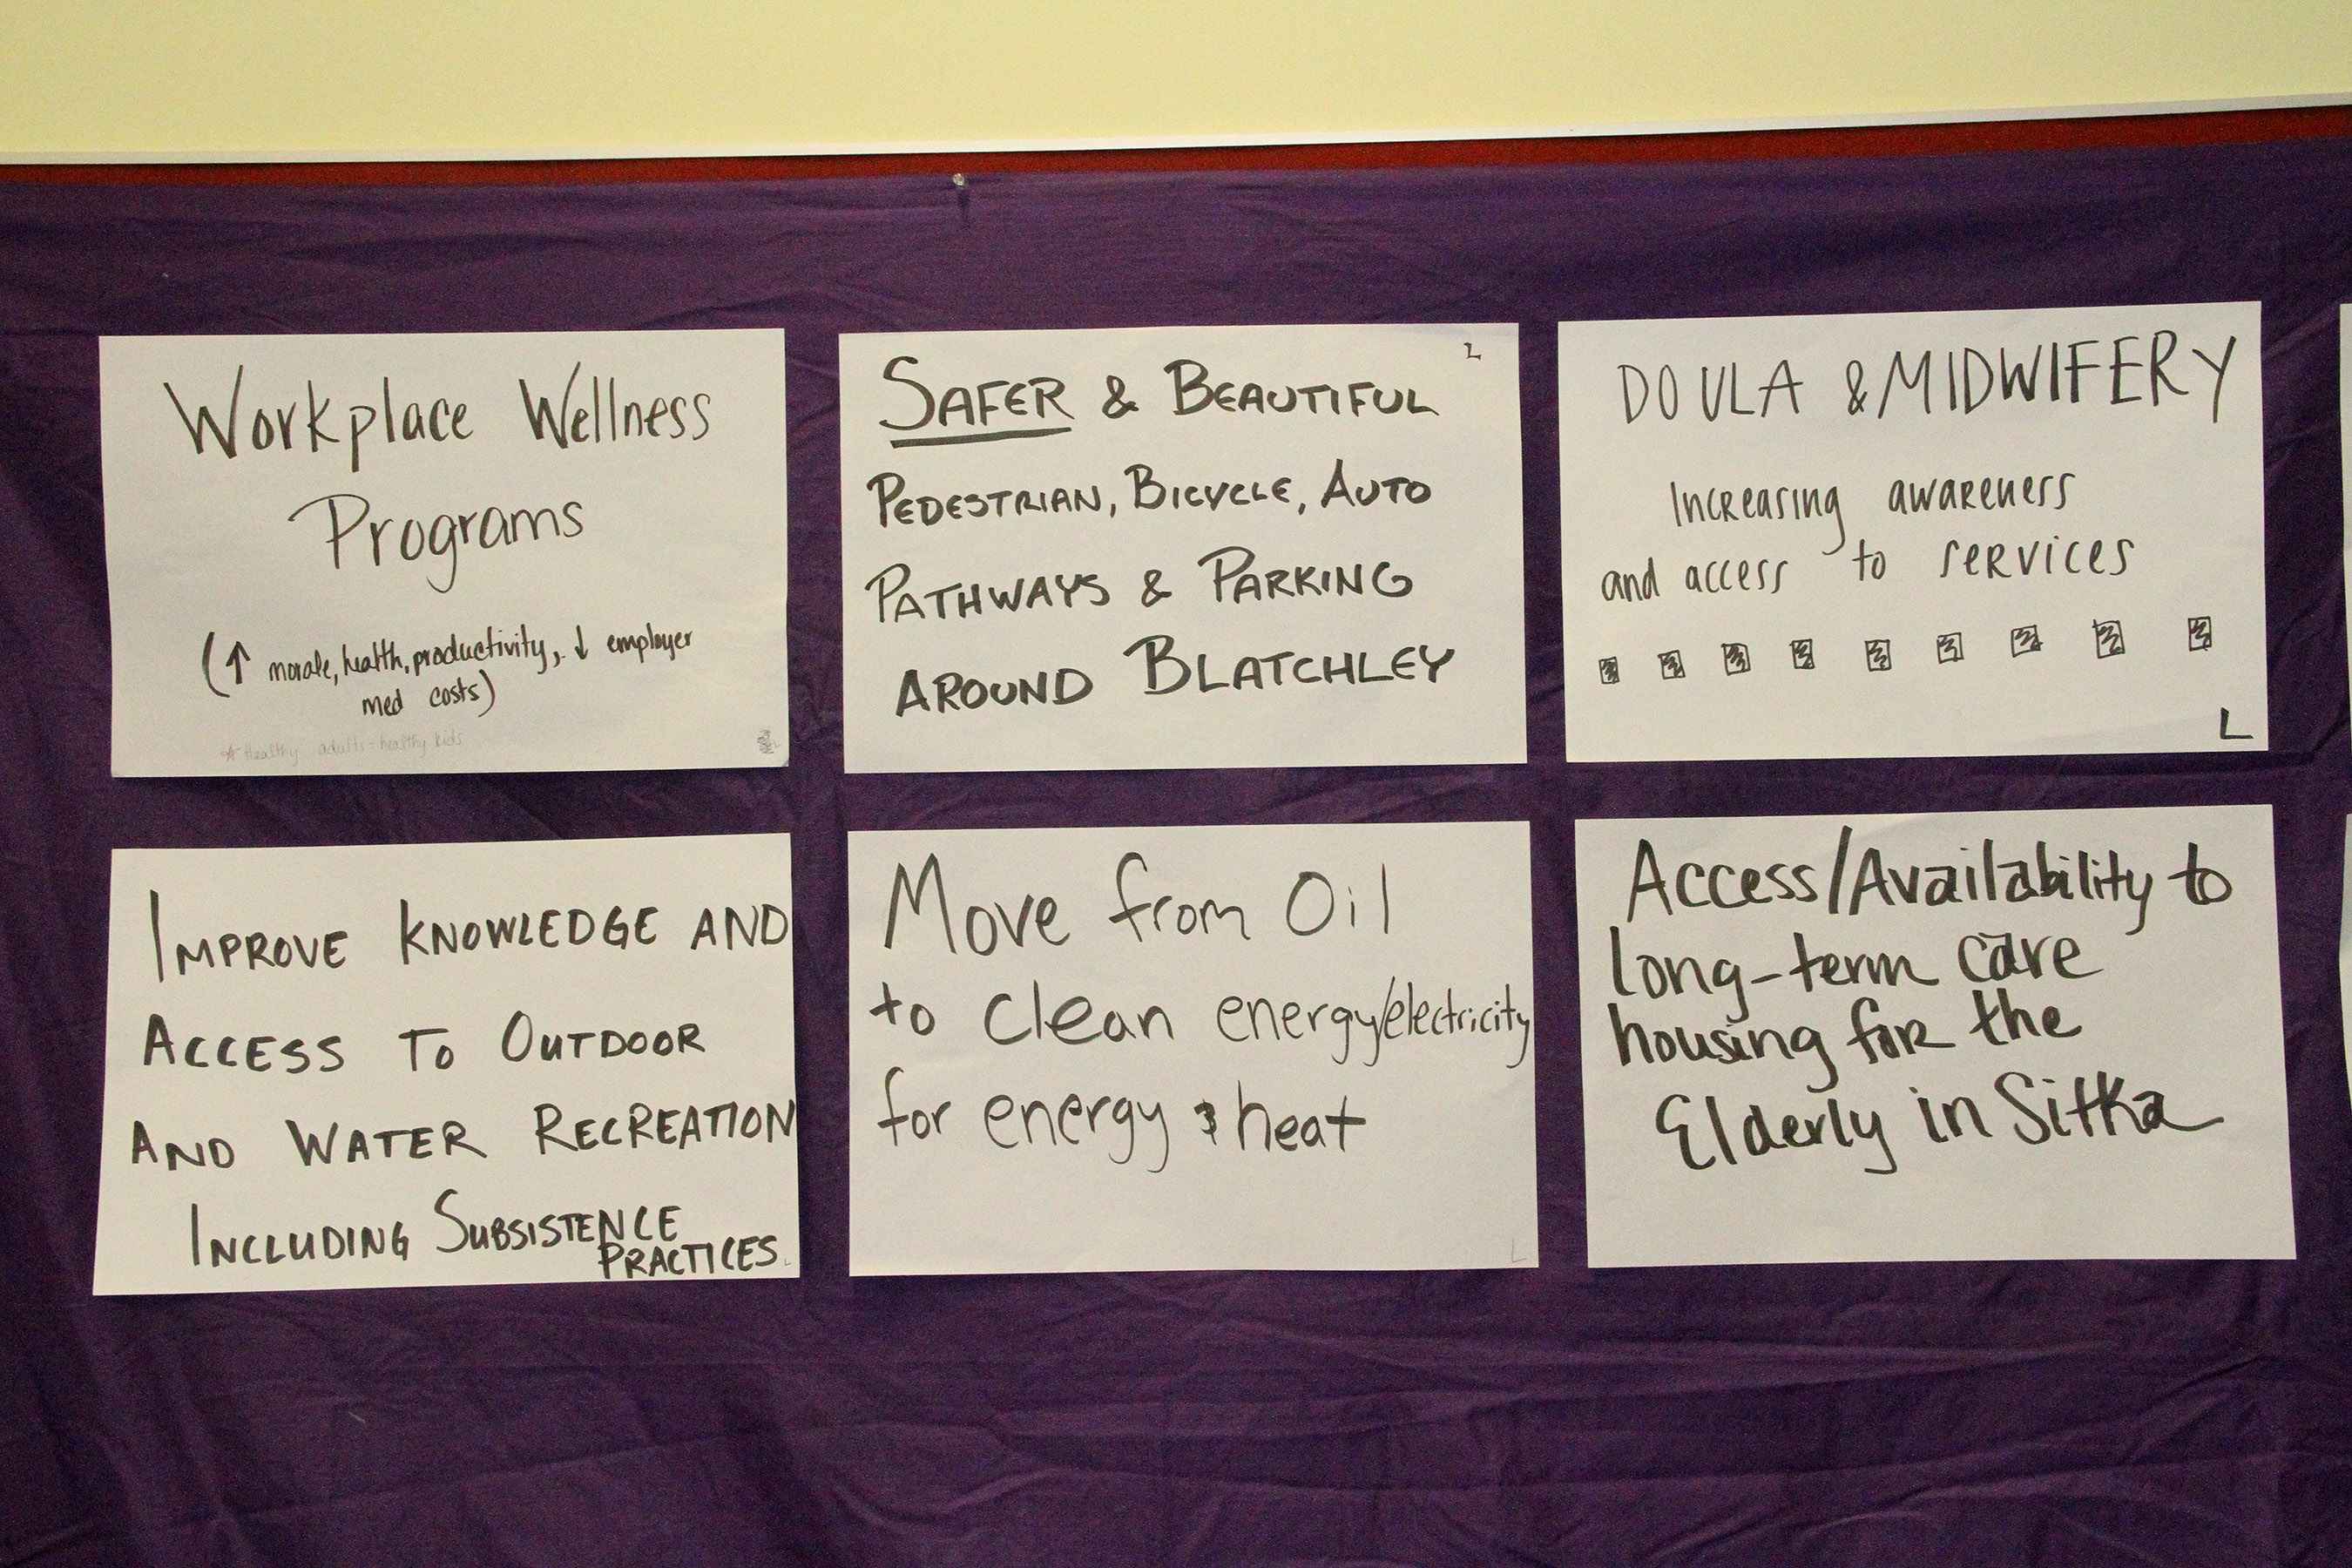 Workplace Wellness
Programs
(↑ morale, health, productivity, ↓ employer
med costs)
☆ Healthy adults = healthy kids
L
SAFER & BEAUTIFUL
PEDESTRIAN, BICYCLE, AUTO
PATHWAYS & PARKING
AROUND BLATCHLEY
DOULA & MIDWIFERY
Increasing awareness
and access to services
L
IMPROVE KNOWLEDGE AND
ACCESS TO OUTDOOR
AND WATER RECREATION
INCLUDING SUBSISTENCE
PRACTICES.
Move from Oil
to clean energy/electricity
for energy & heat
L
Access/Availability to
long-term care
housing for the
Elderly in Sitka